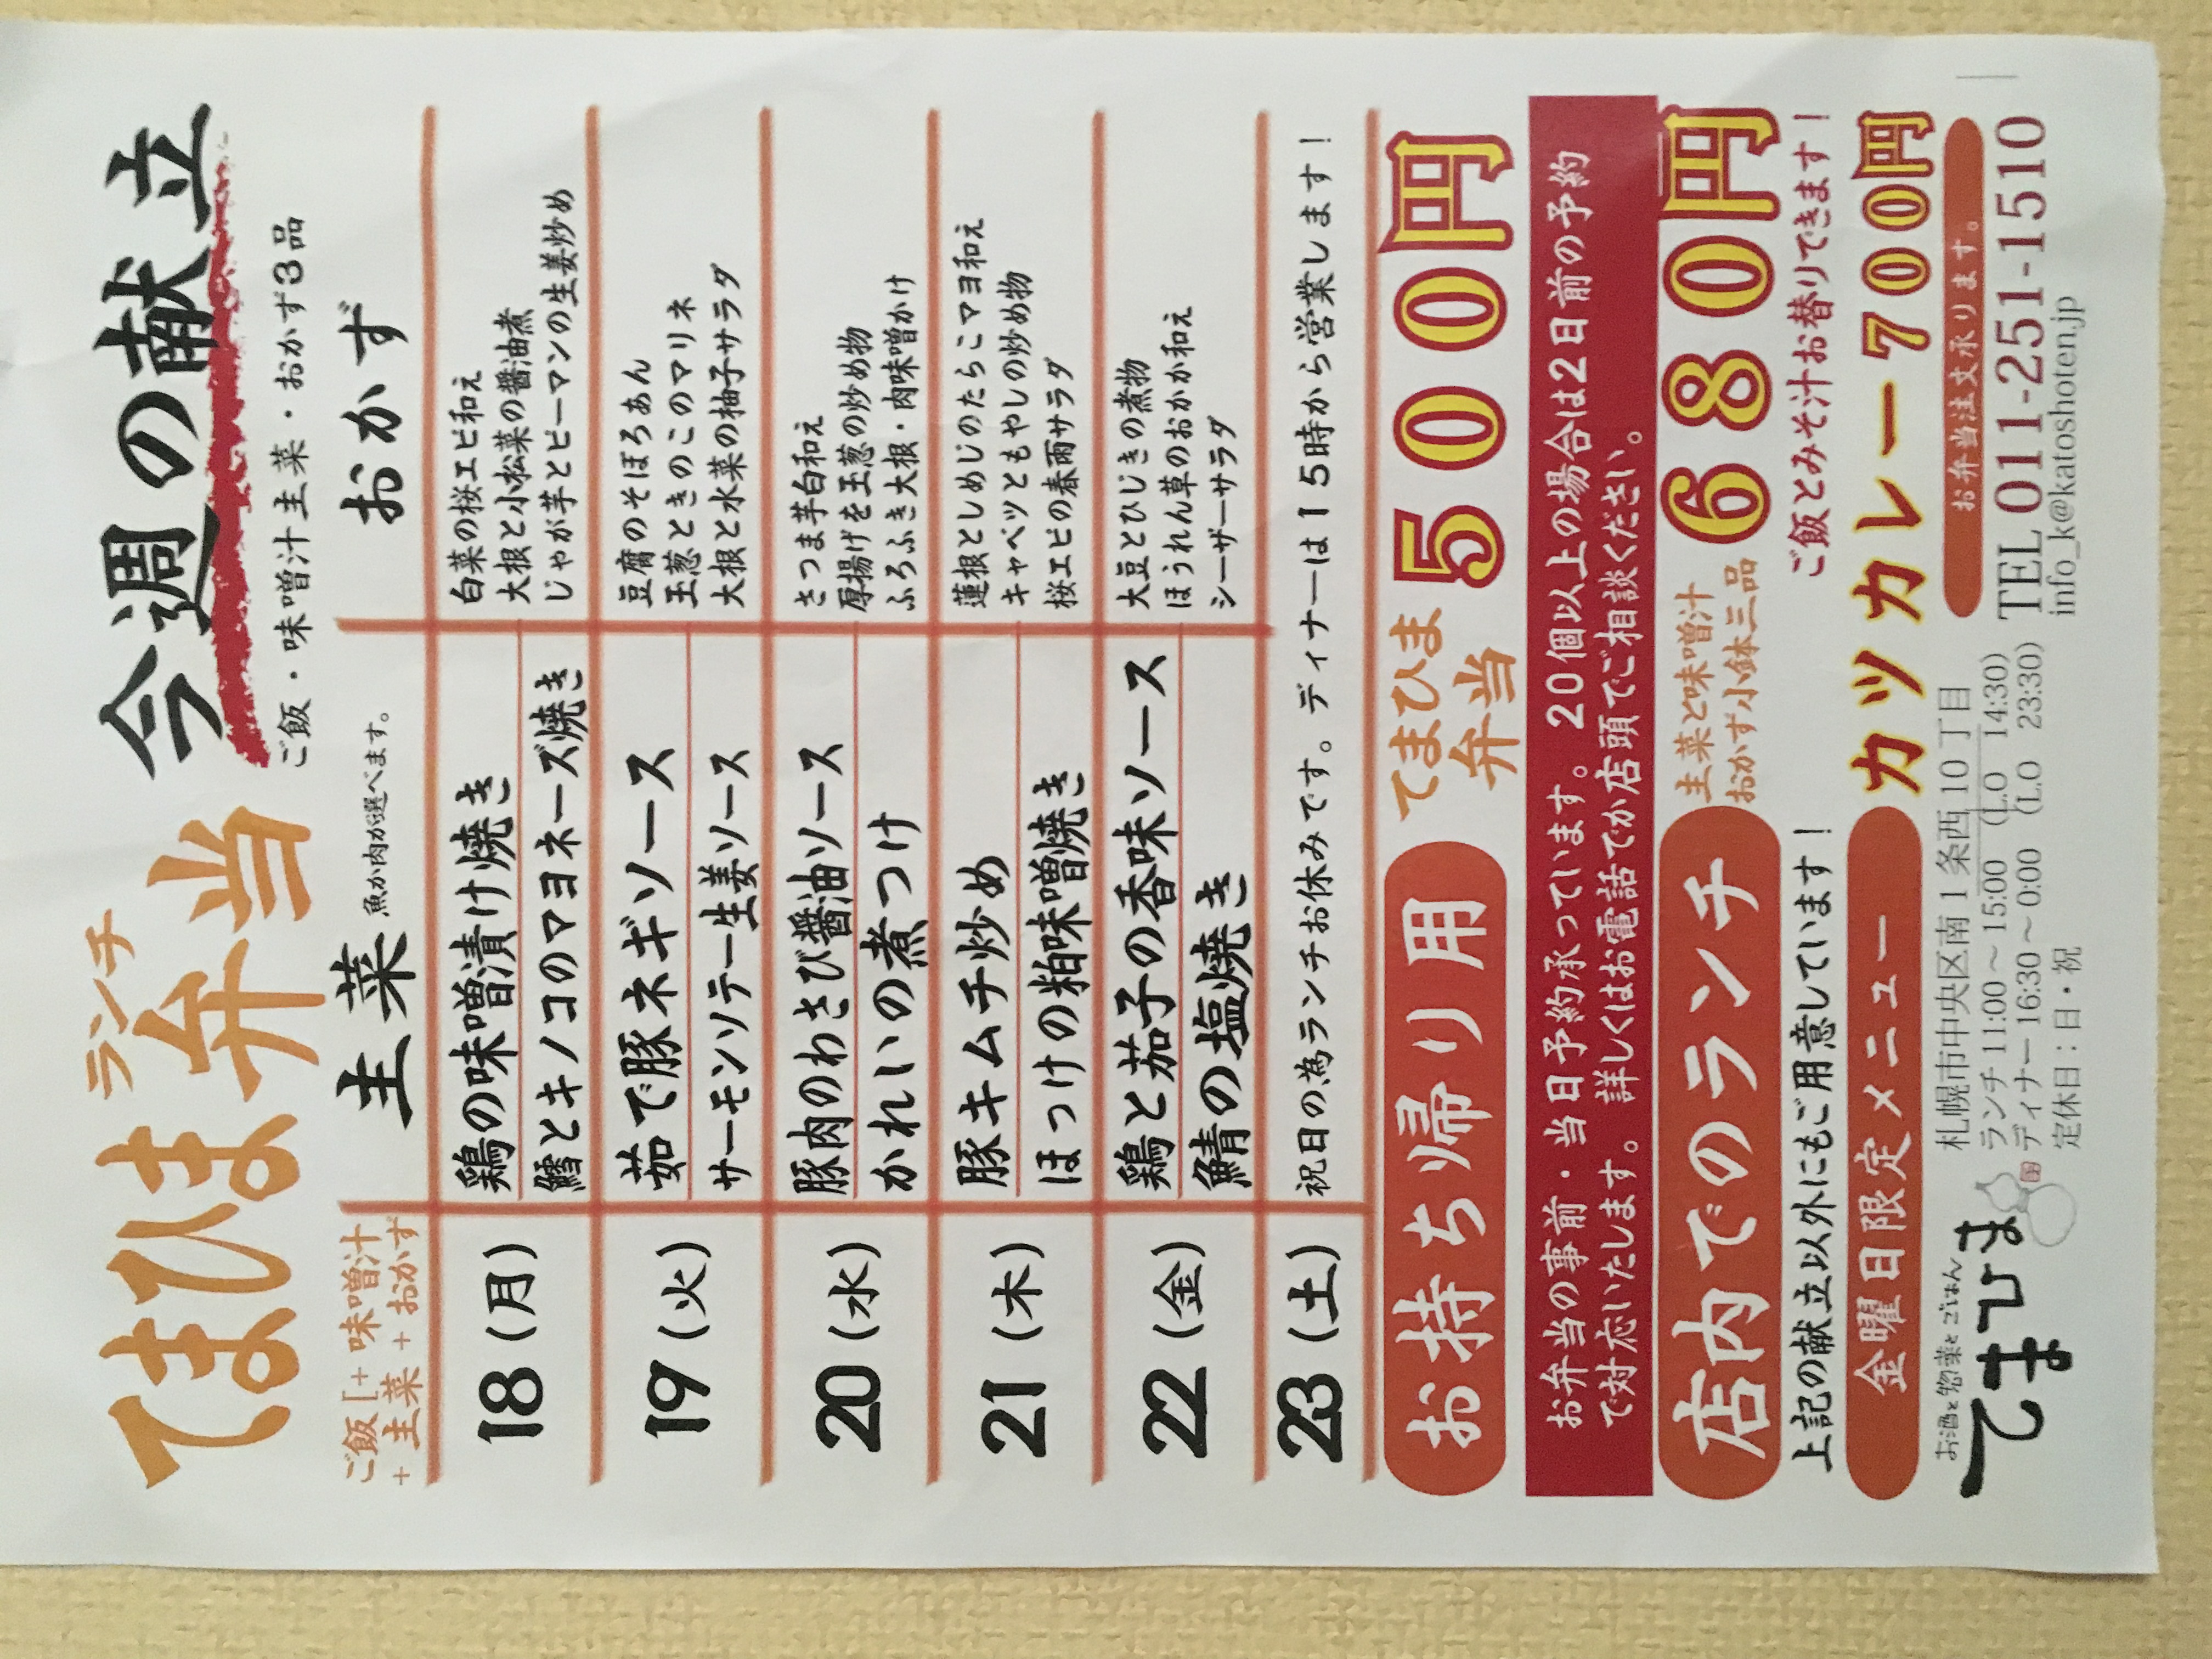 ランチ
てまひま弁当 今週の献立
ご飯・味噌汁主菜・おかず3品
ご飯[+味噌汁
+主菜+おかず
主菜 魚か肉が選べます。
おかず
18(月)
鶏の味噌漬け焼き
鱈とキノコのマヨネーズ焼き
白菜の桜エビ和え
大根と小松菜の醤油煮
じゃが芋とピーマンの生姜炒め
19(火)
茹で豚ネギソース
サーモンソテー生姜ソース
豆腐のそぼろあん
玉葱ときのこのマリネ
大根と水菜の柚子サラダ
20(水)
豚肉のわさび醤油ソース
かれいの煮つけ
さつま芋白和え
厚揚げを玉葱の炒め物
ふろふき大根・肉味噌かけ
21(木)
豚キムチ炒め
ほっけの粕味噌焼き
蓮根としめじのたらこマヨ和え
キャベツともやしの炒め物
桜エビの春雨サラダ
22(金)
鶏と茄子の香味ソース
鯖の塩焼き
大豆とひじきの煮物
ほうれん草のおかか和え
シーザーサラダ
23(土)
祝日の為ランチお休みです。ディナーは15時から営業します!
お持ち帰り用
てまひま
弁当
500円
お弁当の事前・当日予約承っています。20個以上の場合は2日前の予約
で対応いたします。詳しくはお電話でか店頭でご相談ください。
店内でのランチ
主菜と味噌汁
おかず小鉢三品
680円
上記の献立以外にもご用意しています!
ご飯とみそ汁お替りできます!
金曜日限定メニュー カツカレー700円
お酒と惣菜とごはん
てまひま
札幌市中央区南1条西10丁目
ランチ 11:00～15:00 (L.O 14:30)
ディナー 16:30～0:00 (L.O 23:30)
定休日:日・祝
お弁当注文承ります。
TEL 011-251-1510
info_k@katoshoten.jp